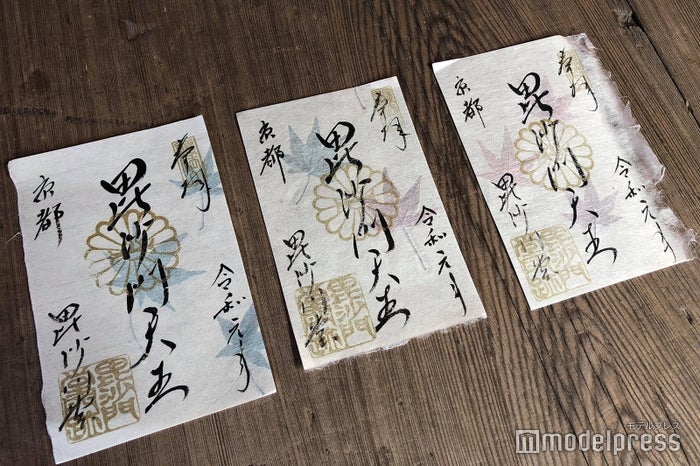 奉拝
令和元
毘沙門天王
京都
毘沙門堂
奉拝
令和元
毘沙門天王
京都
毘沙門堂
奉拝
令和元
毘沙門天王
京都
毘沙門堂
モデルプレス
modelpress